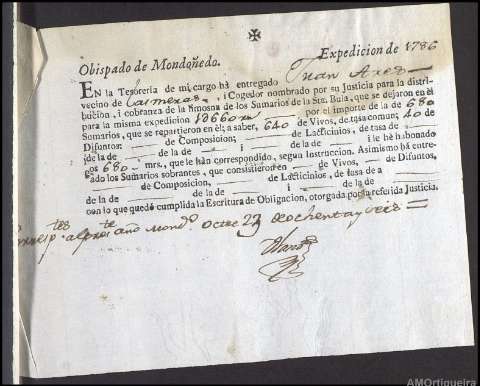 Obispado de Mondoñedo.
Expedicion de 1786
EN la Tesoreria de mi cargo há entregado Juan
vecino de i Cogedor nombrado por su Justicia para la distri-
bucion, i cobranza de la limosna de los Sumarios de la Sta. Bula, que se dejaron en él
para la misma expedicion por el importe de la de 680
Sumarios, que se repartieron en él; á saber, 640 de Vivos, de tasa comun; 40 de
Difuntos: de Composicion; de Lacticinios, de tasa de
de la de de la de i de la de i le hé abonado
680 mrs., que le hán correspondido, segun Instruccion. Asimismo há entre-
gado los Sumarios sobrantes, que consistieron en de Vivos, de Difuntos,
de Composicion, de Lacticinios, de tasa de a
de la de de la de i de la de
con lo que quedó cumplida la Escritura de Obligacion, otorgada por la referida Justicia.
año Mond.º Octre 23 ochenta y seis
AMOrtigueira